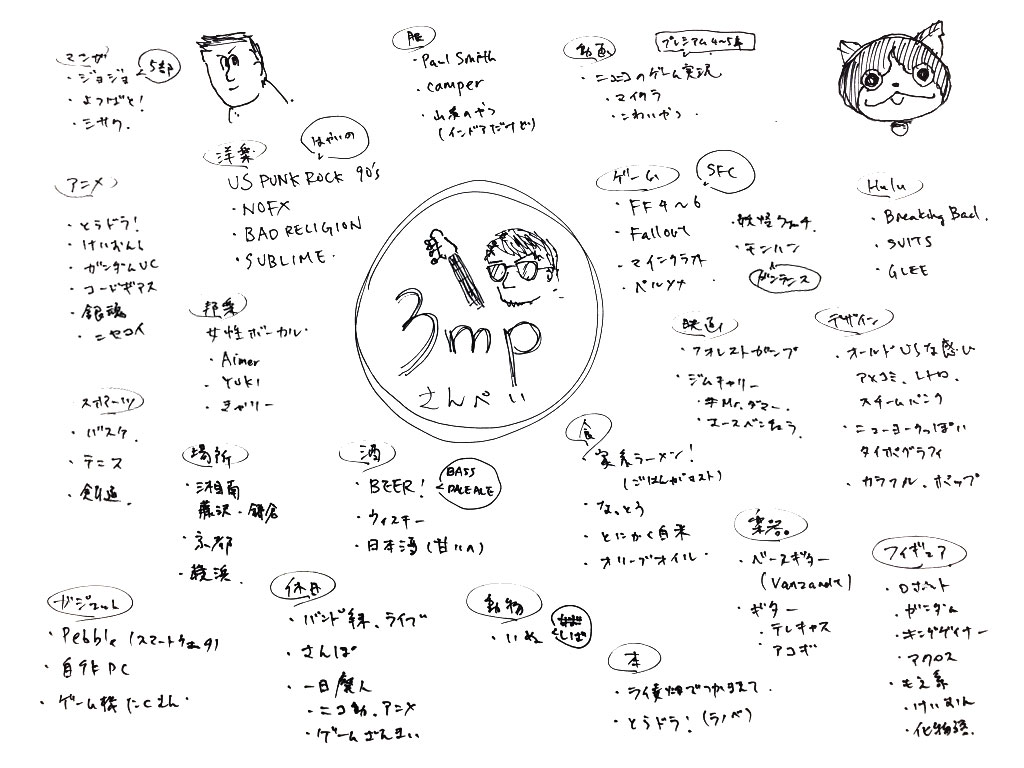 マンガ
5部
・ジョジョ
・よつばと!
・シサク
服
・Paul Smith
・camper
・山系のやつ
(インドアだけど)
動画
プレミアム4〜5年
・ニコニコのゲーム実況
・マイクラ
・こわいやつ
洋楽
はやいの
US PUNK ROCK 90's
・NOFX
・BAD RELIGION
・SUBLIME
アニメ
・とらドラ!
・けいおん!
・ガンダムUC
・コードギアス
・銀魂
・ニセコイ
ゲーム
SFC
・FF4〜6
・Fallout
・マインクラフト
・ペルソナ
・妖怪ウォッチ
・モンハン
ガンランス
Hulu
・Breaking Bad
・SUITS
・GLEE
3mp
さんぺい
邦楽
女性ボーカル
・Aimer
・YUKI
・きゃりー
映画
・フォレストガンプ
・ジムキャリー
・#Mr.ダマー
・エースベンチュラ
デザイン
・オールドUSな感じ
アメコミ、レトロ
スチームパンク
・ニューヨークっぽい
タイポグラフィ
・カラフル、ポップ
スポーツ
・バスケ
・テニス
・剣道
場所
・湘南
藤沢・鎌倉
・京都
・横浜
酒
・BEER!
BASS
PALE ALE
・ウィスキー
・日本酒(甘いの)
食
・家系ラーメン!
(ごはんがマスト)
・なっとう
・とにかく白米
・オリーブオイル
楽器
・ベースギター
(Vanzandt)
・ギター
・テレキャス
・アコギ
フィギュア
・ロボット
・ガンダム
・キングゲイナー
・マクロス
・もえ系
・けいおん
・化物語
ガジェット
・Pebble(スマートウォッチ)
・自作PC
・ゲーム機たくさん
休日
・バンド練、ライブ
・さんぽ
・一日廃人
・ニコ動、アニメ
・ゲームざんまい
動物
・いぬ
しば
本
・ライ麦畑でつかまえて
・とらドラ!(ラノベ)